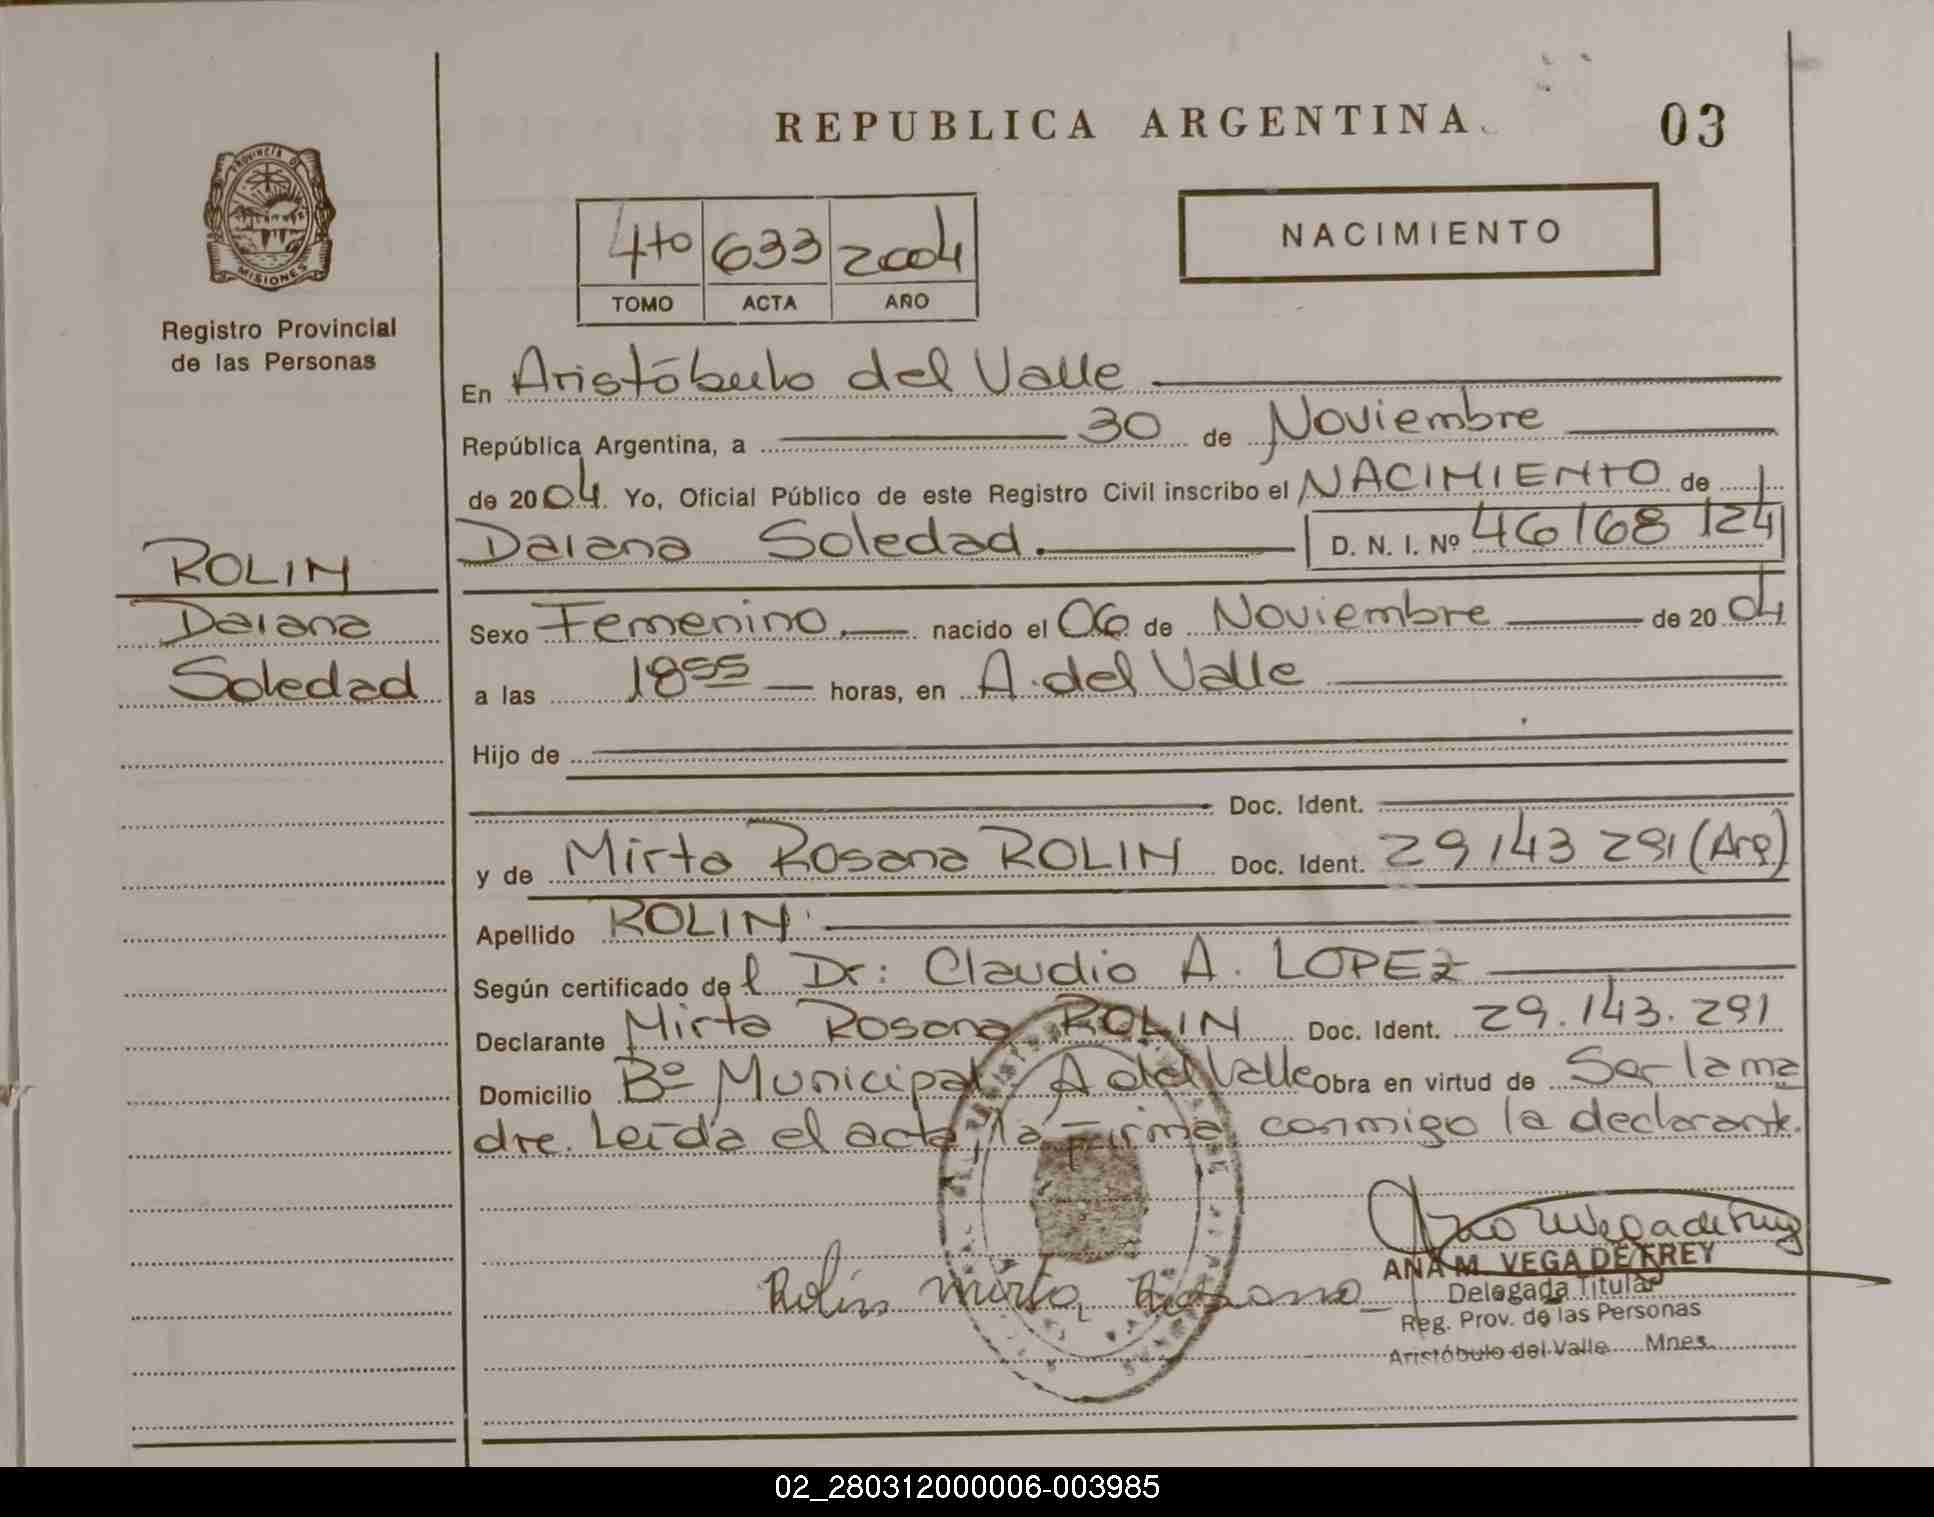 REPUBLICA ARGENTINA
03
PROVINCIA DE
MISIONES
Registro Provincial
de las Personas
4to 633 2004
TOMO ACTA AÑO
NACIMIENTO
En Aristóbulo del Valle
República Argentina, a 30 de Noviembre
de 2004. Yo, Oficial Público de este Registro Civil inscribo el NACIMIENTO de
Daiana Soledad. D. N. I. Nº 46168124
ROLIN
Daiana
Soledad
Sexo Femenino. nacido el 06 de Noviembre de 2004
a las 18 55 horas, en A. del Valle
Hijo de
Doc. Ident.
y de Mirta Rosana ROLIN Doc. Ident. 29143291 (Arg)
Apellido ROLIN
Según certificado del Dr: Claudio A. LOPEZ
Declarante Mirta Rosana ROLIN Doc. Ident. 29.143.291
Domicilio Bº Municipal A del Valle Obra en virtud de Ser la ma
dre. Leída el acta, la firma conmigo la declarante.
Rolin Mirta Rosana
ANA M. VEGA DE FREY
Delegada Titular
Reg. Prov. de las Personas
Aristóbulo del Valle Mnes.
02_280312000006-003985